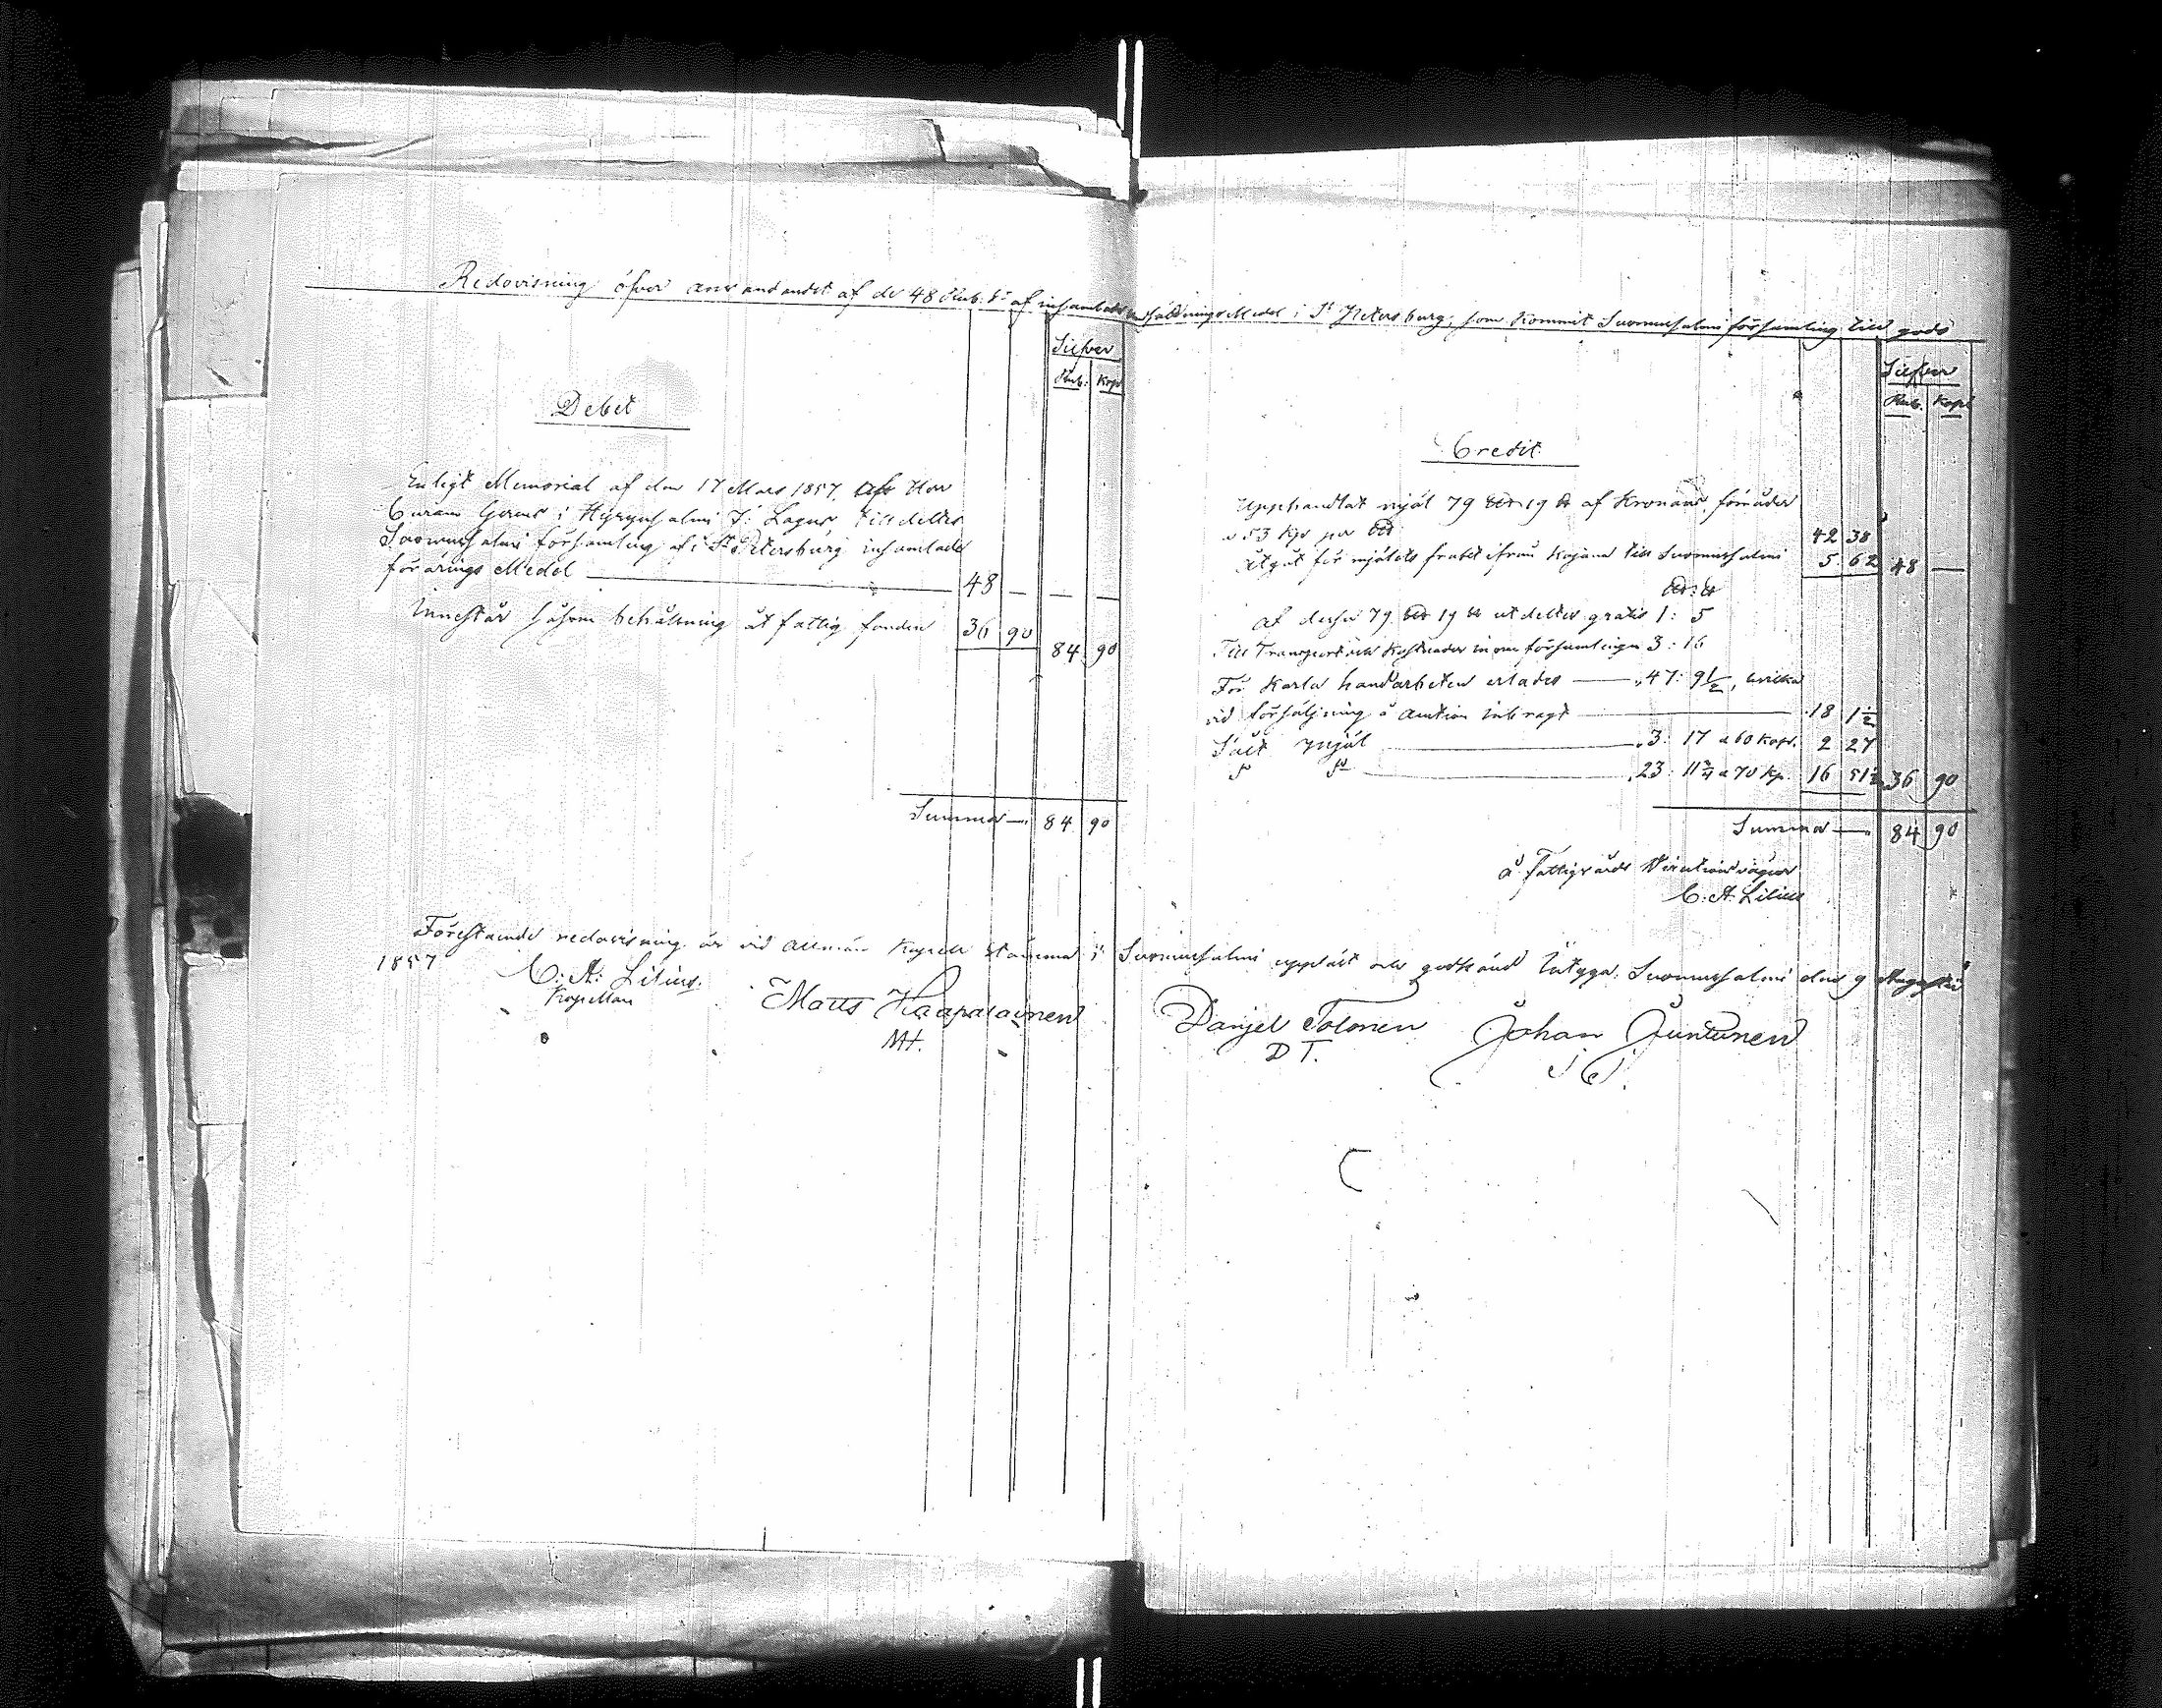 Redovisning öfver användandet af de 48 Rub. Sr af insamlade Medel i St Petersburg, som kommit Suomussalmi församling till godo
Silfver
Rub. Kop
Debet
Enligt Memorial af den 17 Mars 1857, Herr
Curam Gerens i Hyrynsalmi J: Lagus, tilldeltes
Suomussalmi församling af i St Petersburg insamlade
Medel — 48 — — —
Innestår såsom behållning åt fattig fonden 36 90 84 90
Summa — 84 90
Silfver
Rub. Kop
Credit
Upphandlat mjöl 79 19 af Kronans förråder
a 53 Kop per 42 38
Utgåt för mjölets frakt ifrån Kajana till Suomussalmi 5 62 48 —
af dessa 79 19 utdeltes gratis 1: 5
Till Transport och Kostnader inom församlingen 3: 16
För Karla handarbeten erlades — 47: 9 1/2, hvilka
vid försäljning å Auction inbragt — 18 1 1/2
Sålt mjöl — 3: 17 a 60 Kop. 2 27
So So — 23: 11 3/4 a 70 Kp. 16 51 1/2 36 90
Summa — 84 90
å Fattigvårds Direktions vägnar
C: A: Lilius
Förestående redovisning är vid allmän Kapell stämma i Suomussalmi uppläst och godkänd Intyga. Suomussalmi den 9 Augusti
1857
C: A: Lilius.
Kapellan
Matts Haapalainen
MH.
Danjel Tolonen
D T.
Johan Juntunen
J J.